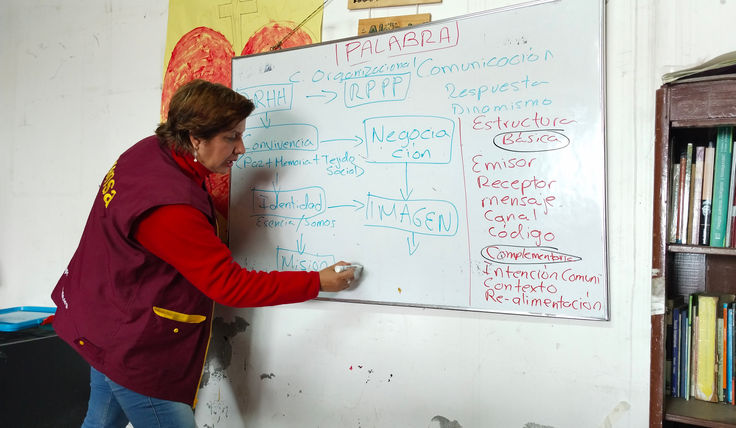 PALABRA
C. Organizacional Comunicación
RRHH → RRPP
Respuesta
Dinamismo
Convivencia → Negocia
ción
(Paz + Memoria + Tejido
Social)
Identidad → IMAGEN
Esencia/Somos
Misión
Estructura
Básica
Emisor
Receptor
mensaje
Canal
Código
Complementaria
Intención Comuni
Contexto
Re-alimentación